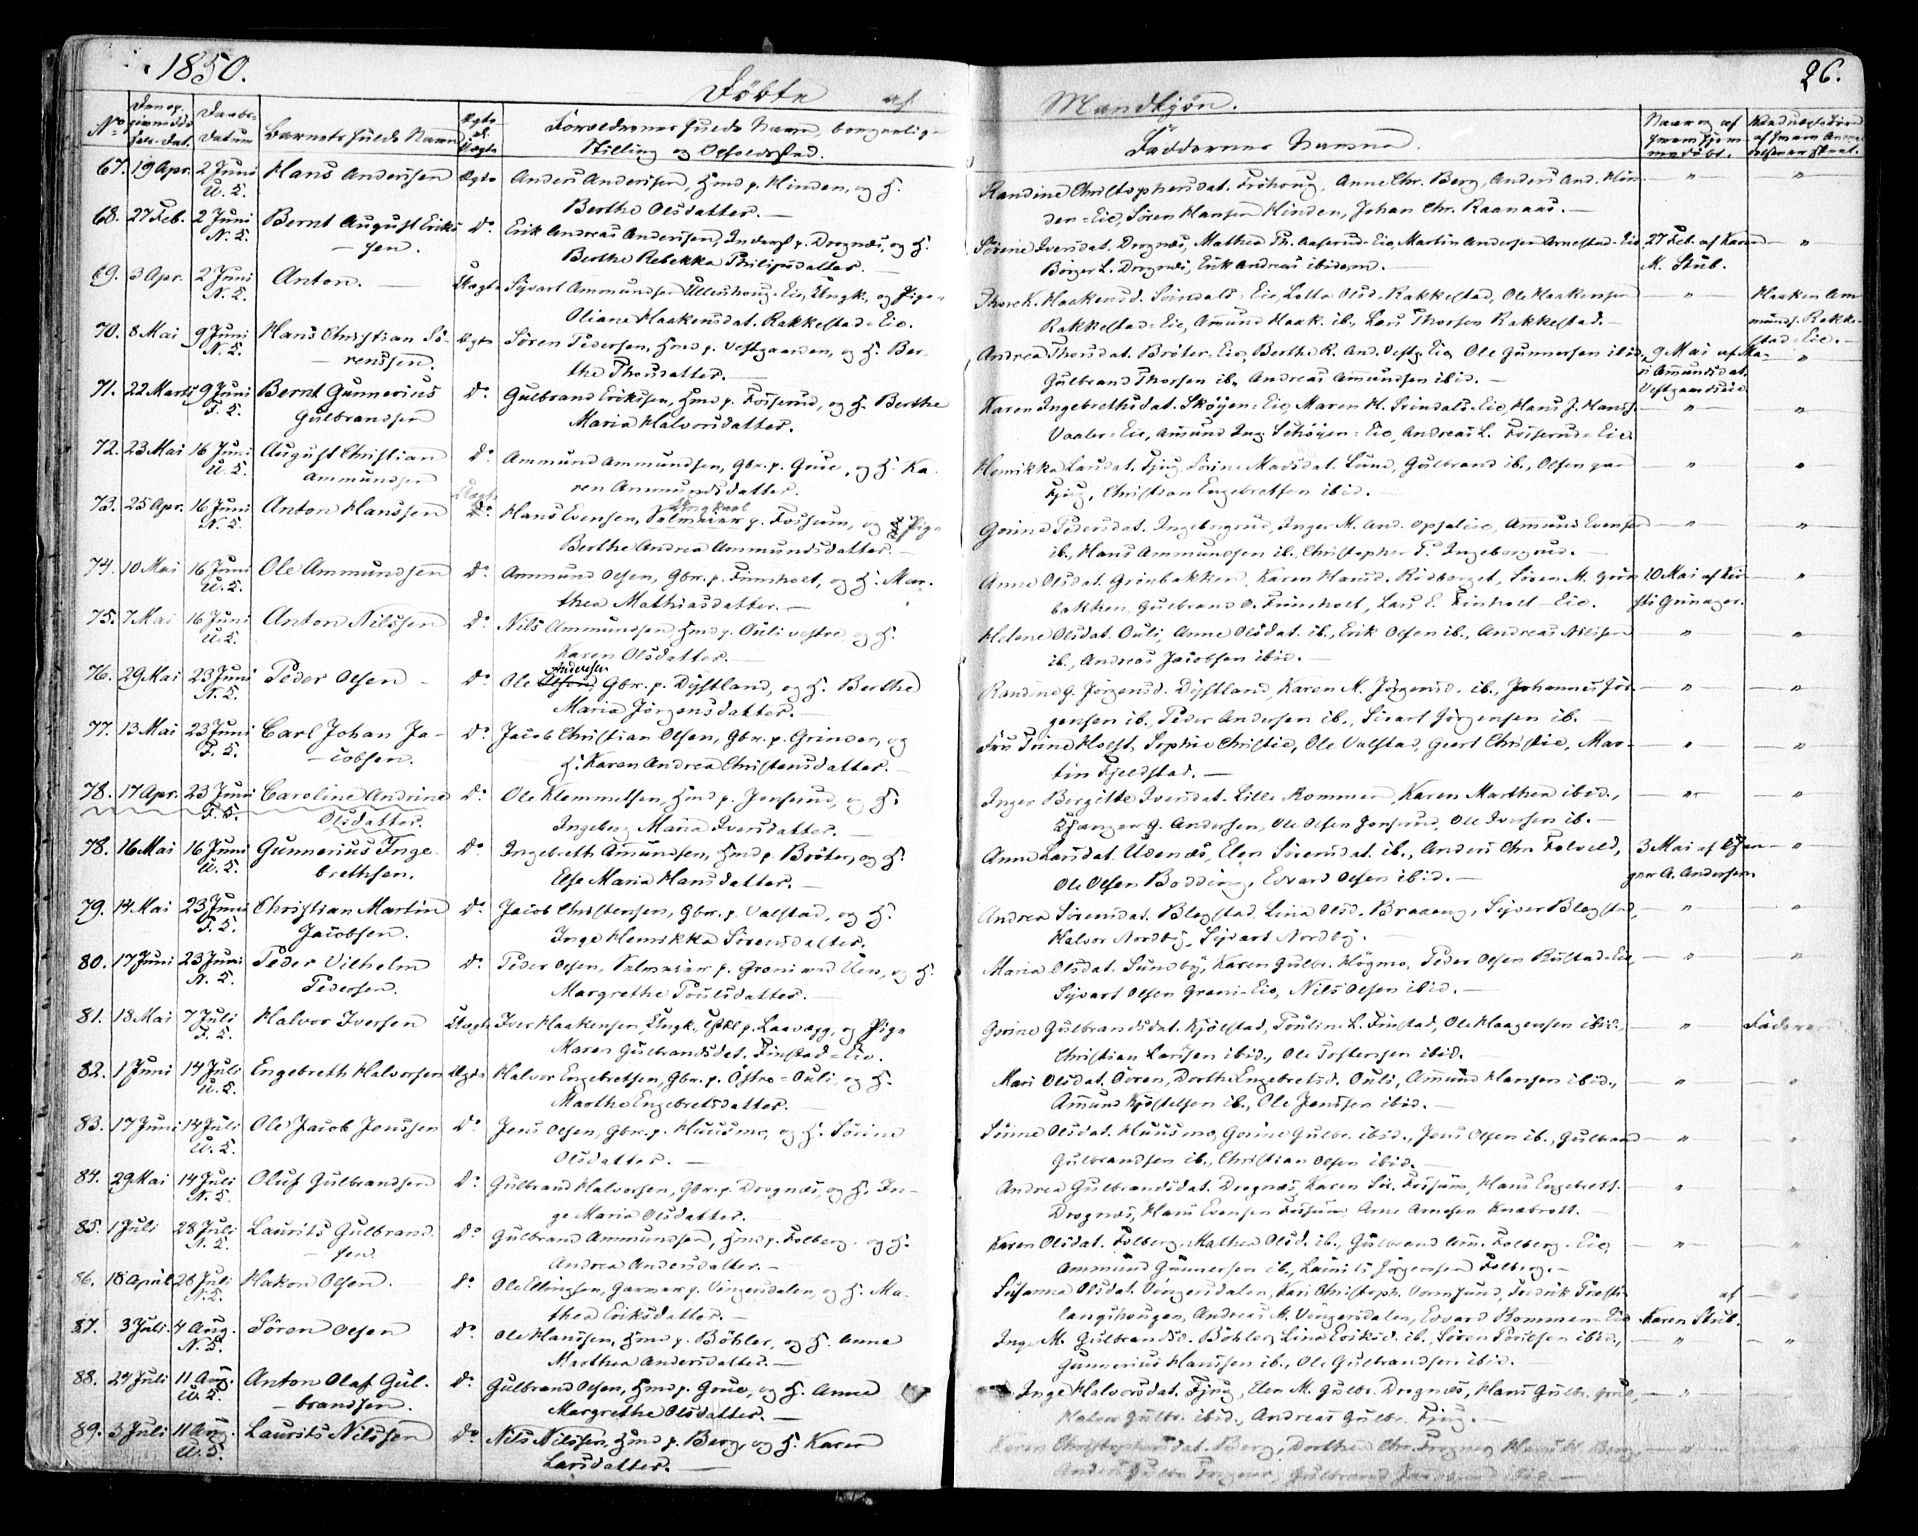 1850.
Döbte af Mandkjön.
26.
No
Datum
Barnets fulde Navn
Forældrenes fulde Navn, borgerlige
Stilling og Opholdssted.
Faddernes Navne.
67. 19 Apr. 2 Juni Hans Anderssen Ægte Anders Anderssen, Hmd p. Hinden, og H.
Berthe Olsdatter. —
Randine Christophersdat. Fröhoug, Anne Chr. Berg, Anders And. Hin-
den-Eie, Sören Hansen Hinden, Johan Chr. Raanaas. —
68. 27 Feb. 2 Juni N. K. Bernt August Erik-
sen. Do Erik Andreas Anderssen, Inderst p. Drognæs, og H.
Berthe Rebekka Philipsdatter. —
Sörine Iversdat. Drognæs, Mathea Th. Aaserud-Eie, Martin Andersen Arnestad-Eie
Börger L. Drognæs, Erik Andreas ibidem. —
27 Feb. af Karen
M. Stub.
69. 3 Apr. 2 Juni N. K. Anton. — Uægte Syvart Ammundsen Ullershoug-Eie, Ungk. og Pige
Oliane Haakensdat. Rakkestad-Eie.
Haakensd. Lotte Olsd. Rakkestad, Ole Haakensen
Rakkestad-Eie, Amund Haak. ib., Lars Thorsen Rakkestad. —
Haaken Am-
munds. Rakke-
stad-Eie. —
70. 8 Mai 9 Juni N. K. Hans Christian Sö-
renssen. Ægte Sören Pedersen, Hmd p. Vestgaarden, og H. Ber-
the Thorsdatter. —
Andrea Thorsdat. Bröter-Eie, Berthe K. And. Vestg. Eie, Ole Gunnersen ibid.
Gulbrand Thorsen ib., Andreas Ammundsen ibid. —
9 Mai af Ma-
ri Amundsdat.
Vestgaardseie.
71. 22 Marts 9 Juni Bernt Gunnerius
Gulbrandsen Do Gulbrand Erikssen, Hmd p. Fosserud, og H. Berthe
Maria Halvorsdatter.
Karen Ingebrethsdat. Sköyen-Eie, Maren H. Eie, Hans J. Hanss.
Vaaler-Eie, Amund Ing. Sköyen-Eie, Andreas L. Fosserud-Eie.
72. 23 Mai 16 Juni August Christian
Ammundsen Do Ammund Ammundsen, Gbr. p. Grue, og H. Ka-
ren Ammundsdatter.
Henrikke Larsdat. Fjug, Sörine Madsdat. Lund, Gulbrand ib., Olsen
Fjug, Christian Engebretsen ibid.
73. 25 Apr. 16 Juni N. K. Anton Hanssen Uægte Do Hans Evensen, Ungkarl Selveier p. Fossum, og Pige
Berthe Andrea Ammundsdatter. —
Gorine Pedersdat. Ingeborgrud, Inger M. And. Amund Evensen
ib., Hans Ammundsen ib., Christopher P. Ingeborgrud. —
74. 10 Mai 16 Juni Ole Ammundsen Do Ammund Olsen, Gbr. p. Finnholt, og H. Mar-
thea Mathiasdatter. —
Anne Olsdat. Grinbakken, Karen Hansd. Rödberget, Sören M. Grin-
bakken, Gulbrand O. Finnholt, Lars E. Finholt-Eie.
10 Mai af Kir-
sti Grinager.
75. 7 Mai 16 Juni Anton Nilssen Do Nils Ammundsen Hmd p. Ouli vestre og H.
Karen Olsdatter. —
Helene Olsdat. Ouli, Anne Olsdat. ib., Erik Olsen ib., Andreas Nilssen
ib., Andreas Jacobsen ibid. —
76. 29 Mai 23 Juni N. K. Peder Olsen Do Ole Anderssen, Gbr. p. Dystland, og H. Berthe
Maria Jörgensdatter. —
Jörgensd. Dystland, Karen M. Jörgensd. ib., Johannes Jör-
gensen ib., Peder Andersen ib., Sivart Jörgensen ib. —
77. 13 Mai 23 Juni Carl Johan Ja-
cobsen. Do Jacob Christian Olsen, Gbr. p. Grinder, og
H. Karen Andrea Christensdatter. —
Fru Trine Holst, Sophie Christie, Ole Valstad, Geert Christie, Mar-
tin Fjeldstad. —
78. 17 Apr. 23 Juni Caroline Andrine
Olsdatter. Do Ole Klemmetsen, Hmd p. Jonsrud, og H.
Ingeborg Maria Iversdatter. —
Inger Bergitte Iversdat. Lille Rommen, Karen Marthea ibid.,
Andersen, Ole Olsen Jonsrud, Ole Iversen ib. —
78. 16 Mai 16 Juni Gunnerius Inge-
brethsen. Do Ingebreth Amundsen, Hmd p. Bröter, og H.
Else Maria Hansdatter. —
Anne Larsdat. Udenæs, Elen Sörensdat. ib., Anders Chr.
Ole Olsen Bodding, Edvard Olsen ibid. —
3 Mai af
A. Andersen
79. 14 Mai 23 Juni Christian Martin
Jacobsen. Do Jacob Christensen, Gbr. p. Valstad, og H.
Inge Henrikke Sörensdatter.
Andrea Sörensdat. Blegstad, Lina Olsd. Braaeng, Syver Blegstad,
Halvor Nordby, Syvart Nordby. —
80. 17 Juni 23 Juni N. K. Peder Vilhelm
Pedersen. Do Peder Olsen, Selveier p. Grani, og H.
Margrethe Poulsdatter. —
Maria Olsdat. Sundby, Karen Gulbr. Högmo, Peder Olsen Eie,
Syvart Olsen Grani-Eie, Nils Olsen ibid. —
81. 18 Mai 7 Juli Halvor Iversen Uægte Iver Haakensen, Ungk. p. og Pige
Maren Gulbrandsdat. Finstad-Eie.
Gorine Gulbrandsdat. Kjölstad, Pouline L. Finstad, Ole Haagensen ibid.,
Christian Larssen ibid., Ole Tostenssen ibid. —
Faderen
82. 1 Juni 14 Juli Engebreth Halvorsen Ægte Halvor Engebretsen, Gbr. p. Östre-Ouli, og H.
Marthe Engebretsdatter. —
Mari Olsdat. Dorthe Engebretsd. Ouli, Amund Hansen ibid.,
Amund Kjöstelsen ib., Ole Jenssen ibid. —
83. 17 Juni 14 Juli Ole Jacob Jenssen Do Jens Olsen, Gbr. p. Huusmo, og H. Sörine
Olsdatter. —
Olsdat. Huusmo, Gorine Gulbr. ibid., Jens Olsen ib., Gulbrand
Gulbrandsen ib., Christian Olsen ibid. —
84. 29 Mai 14 Juli N. K. Oluf Gulbrandsen Do Gulbrand Halvorsen, Gbr. p. Drognæs, og H. In-
ge Maria Olsdatter. —
Andrea Gulbrandsdat. Drognæs, Karen Sör. Fossum, Hans Engebrett.
Drognæs, Hans Evensen Fossum, Arne Arnesen Knabrott. —
85. 1 Juli 28 Juli N. K. Laurits Gulbrand-
sen. Do Gulbrand Ammundsen, Hmd p. Folberg, og H.
Andrea Andersdatter. —
Karen Olsdat. Folberg, Mathea Olsd. ib., Gulbrand Am. Folberg-Eie,
Ammund Gunnersen ib., Laurits Jörgensen Folberg. —
86. 18 April 28 Juli N. K. Hakon Olsen Do Ole Ellingsen, Garver p. Vingersdalen, og H. Ma-
thea Eriksdatter. —
Susanna Olsdat. Vingersdalen, Kari Christoph. Vormsund, Fredrik
Andreas M. Vingersdalen, Edvard Rommen-Eie
af
Karen Stub.
87. 3 Juli 4 Aug. N. K. Sören Olsen Do Ole Hanssen, Hmd p. Böhler, og H. Anne
Marthea Andersdatter. —
Inge M. Gulbrandsd. Böhler, Lina Eriksd. ib., Sören ibid.,
Gunnerius Hanssen ib., Ole Gulbrandsen ibid.
88. 24 Juli 11 Aug. Anton Olaf Gul-
brandsen. Do Gulbrand Olsen, Hmd p. Grue, og H. Anne
Margrethe Olsdatter. —
Inge Halvorsdat. Fjug, Elen M. Gulbr. Drognæs, Hans Gulbr. Grue,
Halvor Gulbr. ibid., Andreas Gulbr. Fjug. —
89. 3 Juli 11 Aug. Laurits Nilssen Do Nils Nilssen, Hmd p. Berg, og H. Karen
Larsdatter. —
Karen Christophersdat. Berg, Dorthea Chr. Frogner, Hans H. Berg,
Anders Gulbr. Frogner, Gulbrand ibid. —